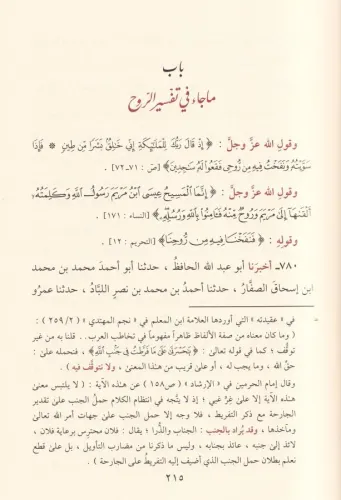 باب
ماجاء في تفسير الرّوح
وقولِ الله عزَّ وجلَّ : ﴿ إِذْ قَالَ رَبُّكَ لِلْمَلَٰٓئِكَةِ إِنِّى خَٰلِقٌۢ بَشَرًا مِّن طِينٍ * فَإِذَا
سَوَّيْتُهُۥ وَنَفَخْتُ فِيهِ مِن رُّوحِى فَقَعُوا۟ لَهُۥ سَٰجِدِينَ﴾ [ص : ٧١-٧٢] .
وقولِ الله عزَّ وجلَّ : ﴿ إِنَّمَا ٱلْمَسِيحُ عِيسَى ٱبْنُ مَرْيَمَ رَسُولُ ٱللَّهِ وَكَلِمَتُهُۥٓ
أَلْقَىٰهَآ إِلَىٰ مَرْيَمَ وَرُوحٌ مِّنْهُ فَـَٔامِنُوا۟ بِٱللَّهِ وَرُسُلِهِۦ﴾ [النساء : ١٧١] .
وقولِهِ : ﴿ فَنَفَخْنَا فِيهِ مِن رُّوحِنَا﴾ [التحريم : ١٢] .
٧٨٠ـ أخبرَنا أبو عبد الله الحافظُ ، حدثنا أبو أحمدَ محمد بن محمد
ابن إسحاقَ الصفَّارُ ، حدثنا أحمدُ بن محمد بن نصرٍ اللبَّادُ ، حدثنا عمرُو
في « عقيدته » التي أوردها العلامة ابن المعلم في « نجم المهتدي » ( ٢٥٩/٢ ) :
( وما كان معناه من صفة الألفاظ ظاهراً مفهوماً في تخاطب العرب.. قلنا به من غير
توقُّف ؛ كما في قوله تعالى : ﴿ بَحَسْرَتَىٰ عَلَىٰ مَا فَرَّطتُ فِى جَنۢبِ ٱللَّهِ﴾ ، فتحمله علىٰ :
حقِّ الله ، وما يجب له ، أو علىٰ قريب من هذا المعنىٰ ، ولا نتوقَّف فيه ) .
وقال إمام الحرمين في « الإرشاد » ( ص١٥٨ ) عن هذه الآية : ( لا يلتبس معنىٰ
هذه الآية إلا علىٰ غِرٍّ غبي ؛ إذ لا يتَّجه في انتظام الكلام حملُ الجنب علىٰ تقدير
الجارحة مع ذكر التفريط ، فلا وجه إلا حمل الجنب علىٰ جهات أمر الله تعالىٰ
ومآخذها ، وقد يُراد بالجنب : الجناب والذَّرا ؛ يقال : فلان محترس برعاية فلان ،
لائذ إلىٰ جنبه ، عائذ بجنابه ، وليس ما ذكرنا من مضارب التأويل ، بل علىٰ قطع
نعلم بطلان حمل الجنب الذي أضيف إليه التفريطُ على الجارحة ) .
٢١٥